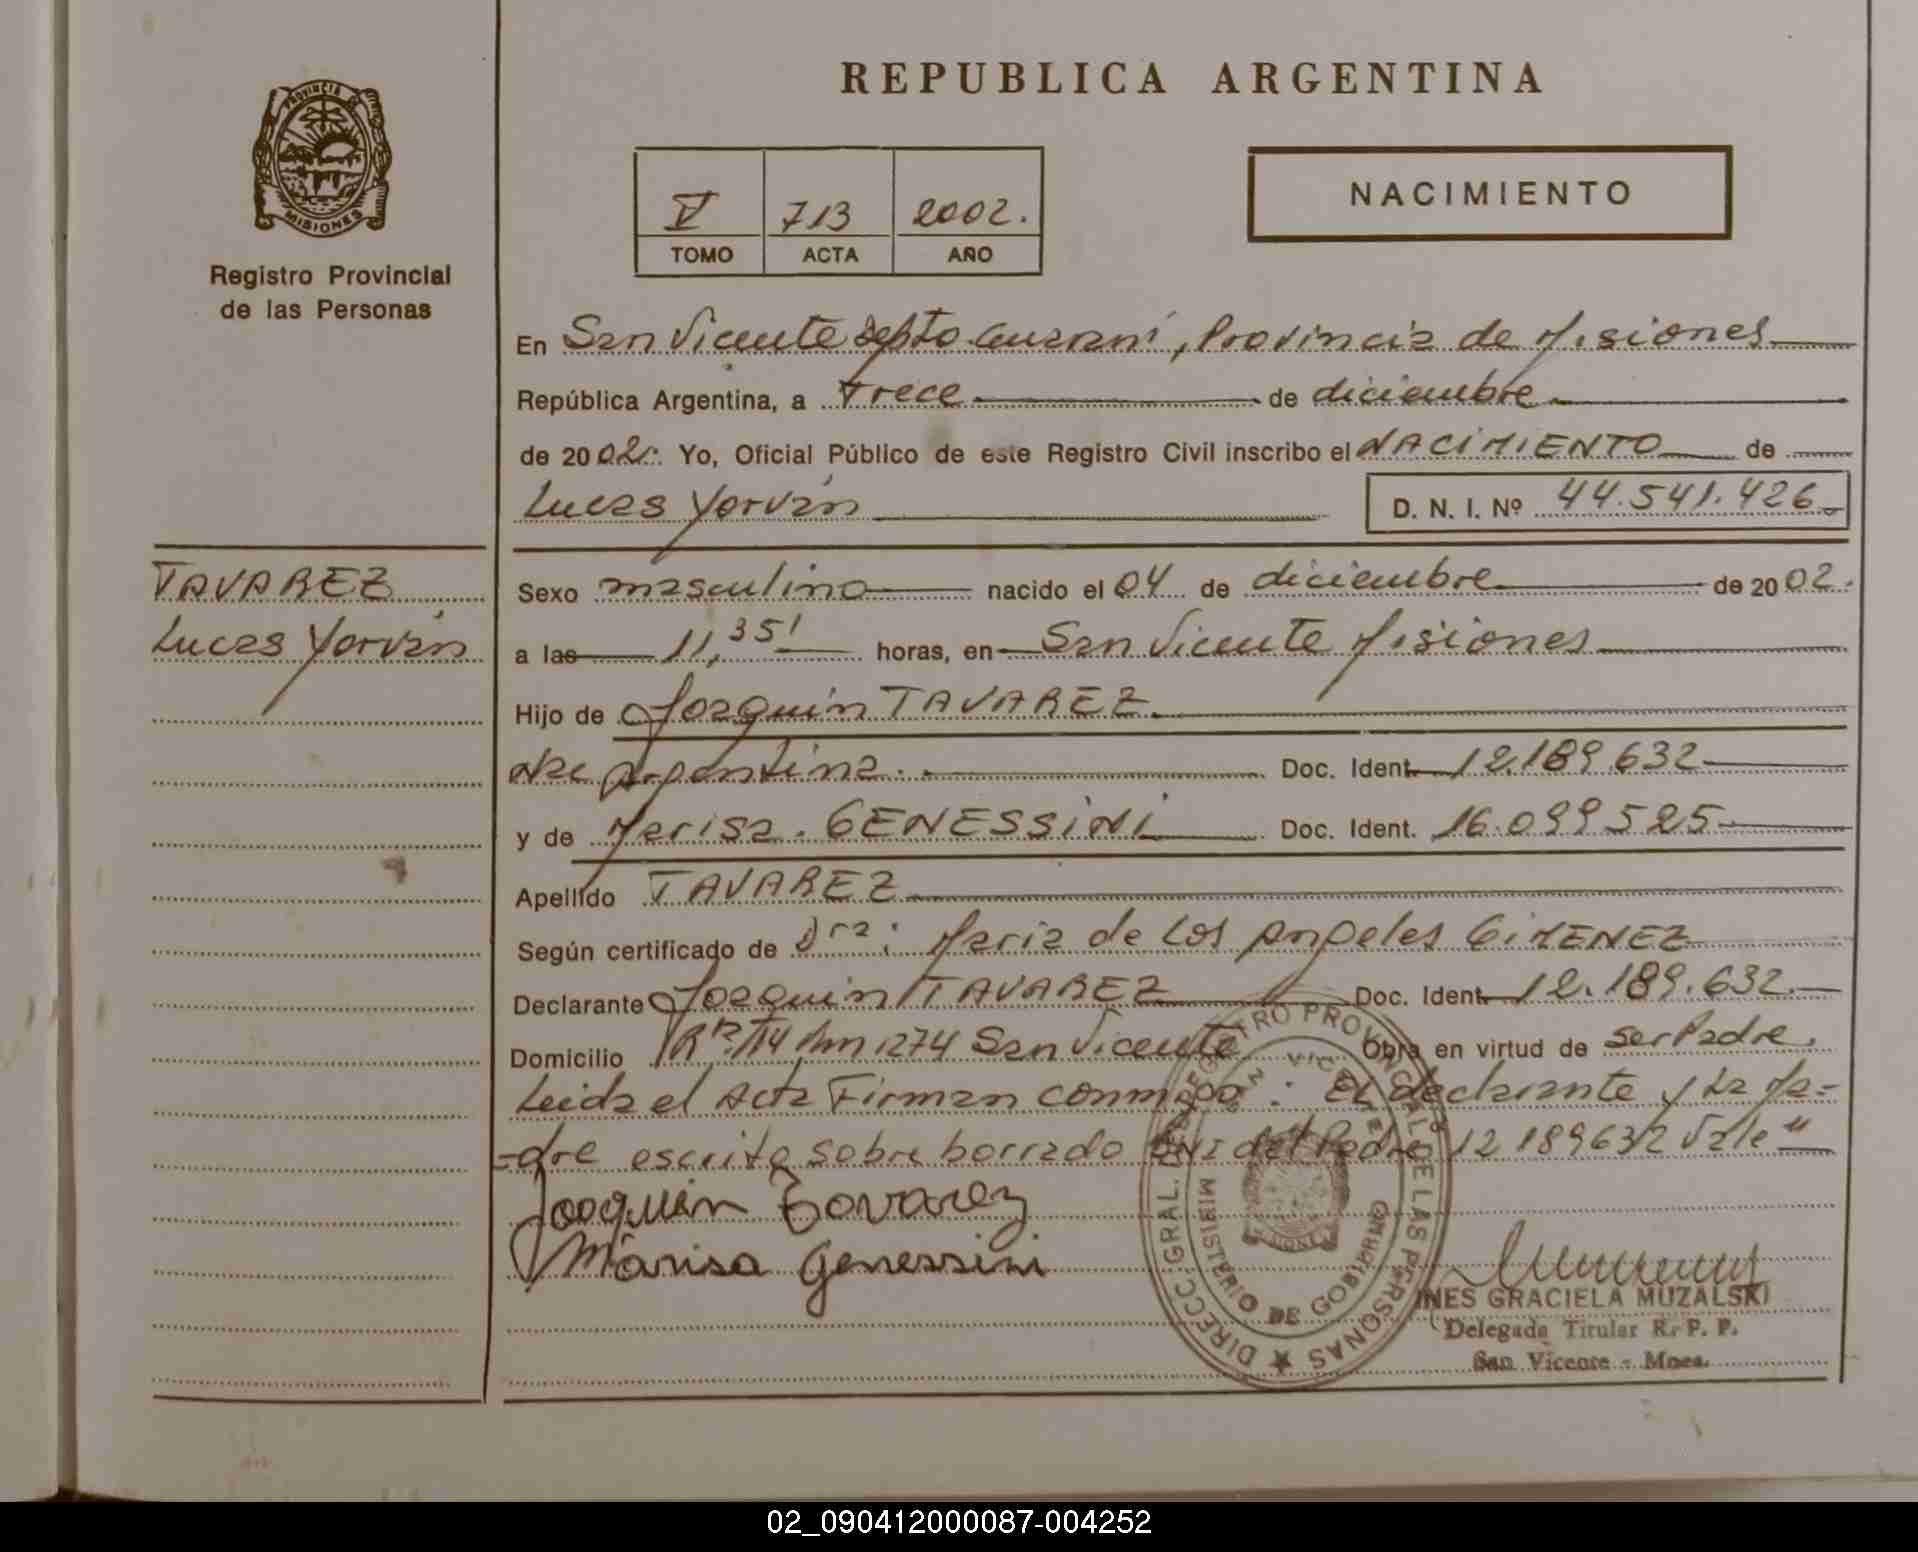 PROVINCIA DE
MISIONES
Registro Provincial
de las Personas
REPUBLICA ARGENTINA
V 713 2002.
TOMO ACTA AÑO
NACIMIENTO
En San Vicente depto Guaraní, Provincia de Misiones
República Argentina, a Trece de diciembre
de 2002. Yo, Oficial Público de este Registro Civil inscribo el NACIMIENTO de
Lucas Yorván D. N. I. Nº 44.541.426
TAVAREZ
Lucas Yorván
Sexo masculino nacido el 04 de diciembre de 2002.
a las 11,35' horas, en San Vicente Misiones
Hijo de Joaquin TAVAREZ
Nac Argentina. Doc. Ident. 12.189.632
y de Marisa. GENESSiNi Doc. Ident. 16.099.525
Apellido TAVAREZ
Según certificado de Dra: Maria de Los Angeles GiMENEZ
Declarante Joaquin TAVAREZ Doc. Ident. 12.189.632.
Domicilio Rta 14 Km 1274 San Vicente Obra en virtud de ser Padre.
Leida el Acta Firman conmigo: El declarante y La Ma-
-dre escrito sobre borrado DNI del Padre 12189632 Vale"
Joaquin Tavarez
Marisa Genessini
DIRECC. GRAL. DEL REGISTRO PROVINCIAL DE LAS PERSONAS
SAN VICENTE
MINISTERIO DE GOBIERNO
INES GRACIELA MUZALSKI
Delegada Titular R. P. P.
San Vicente - Mnes.
02_090412000087-004252